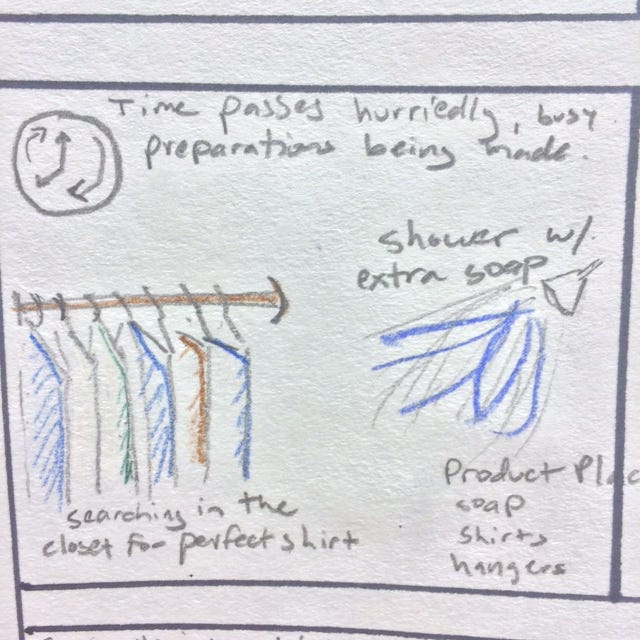 Time passes hurriedly, busy
preparations being made.
shower w/
extra soap
searching in the
closet for perfect shirt
Product Plac
soap
shirts
hangers